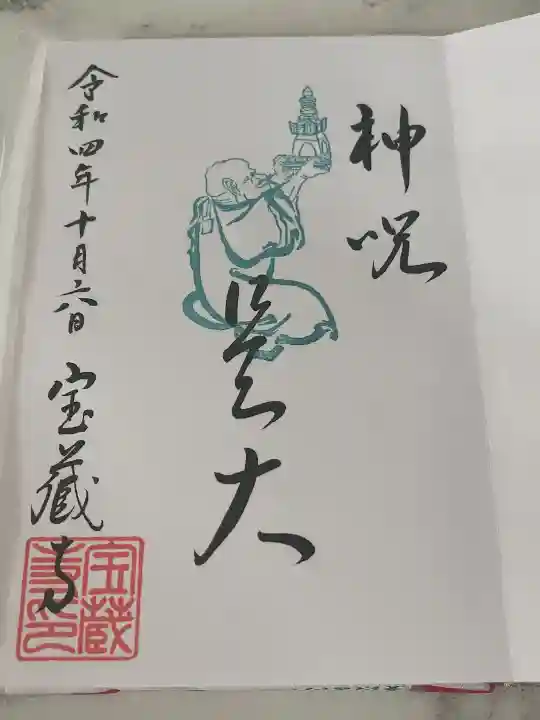 神呪
大
令和四年十月六日 宝蔵寺
宝蔵寺印